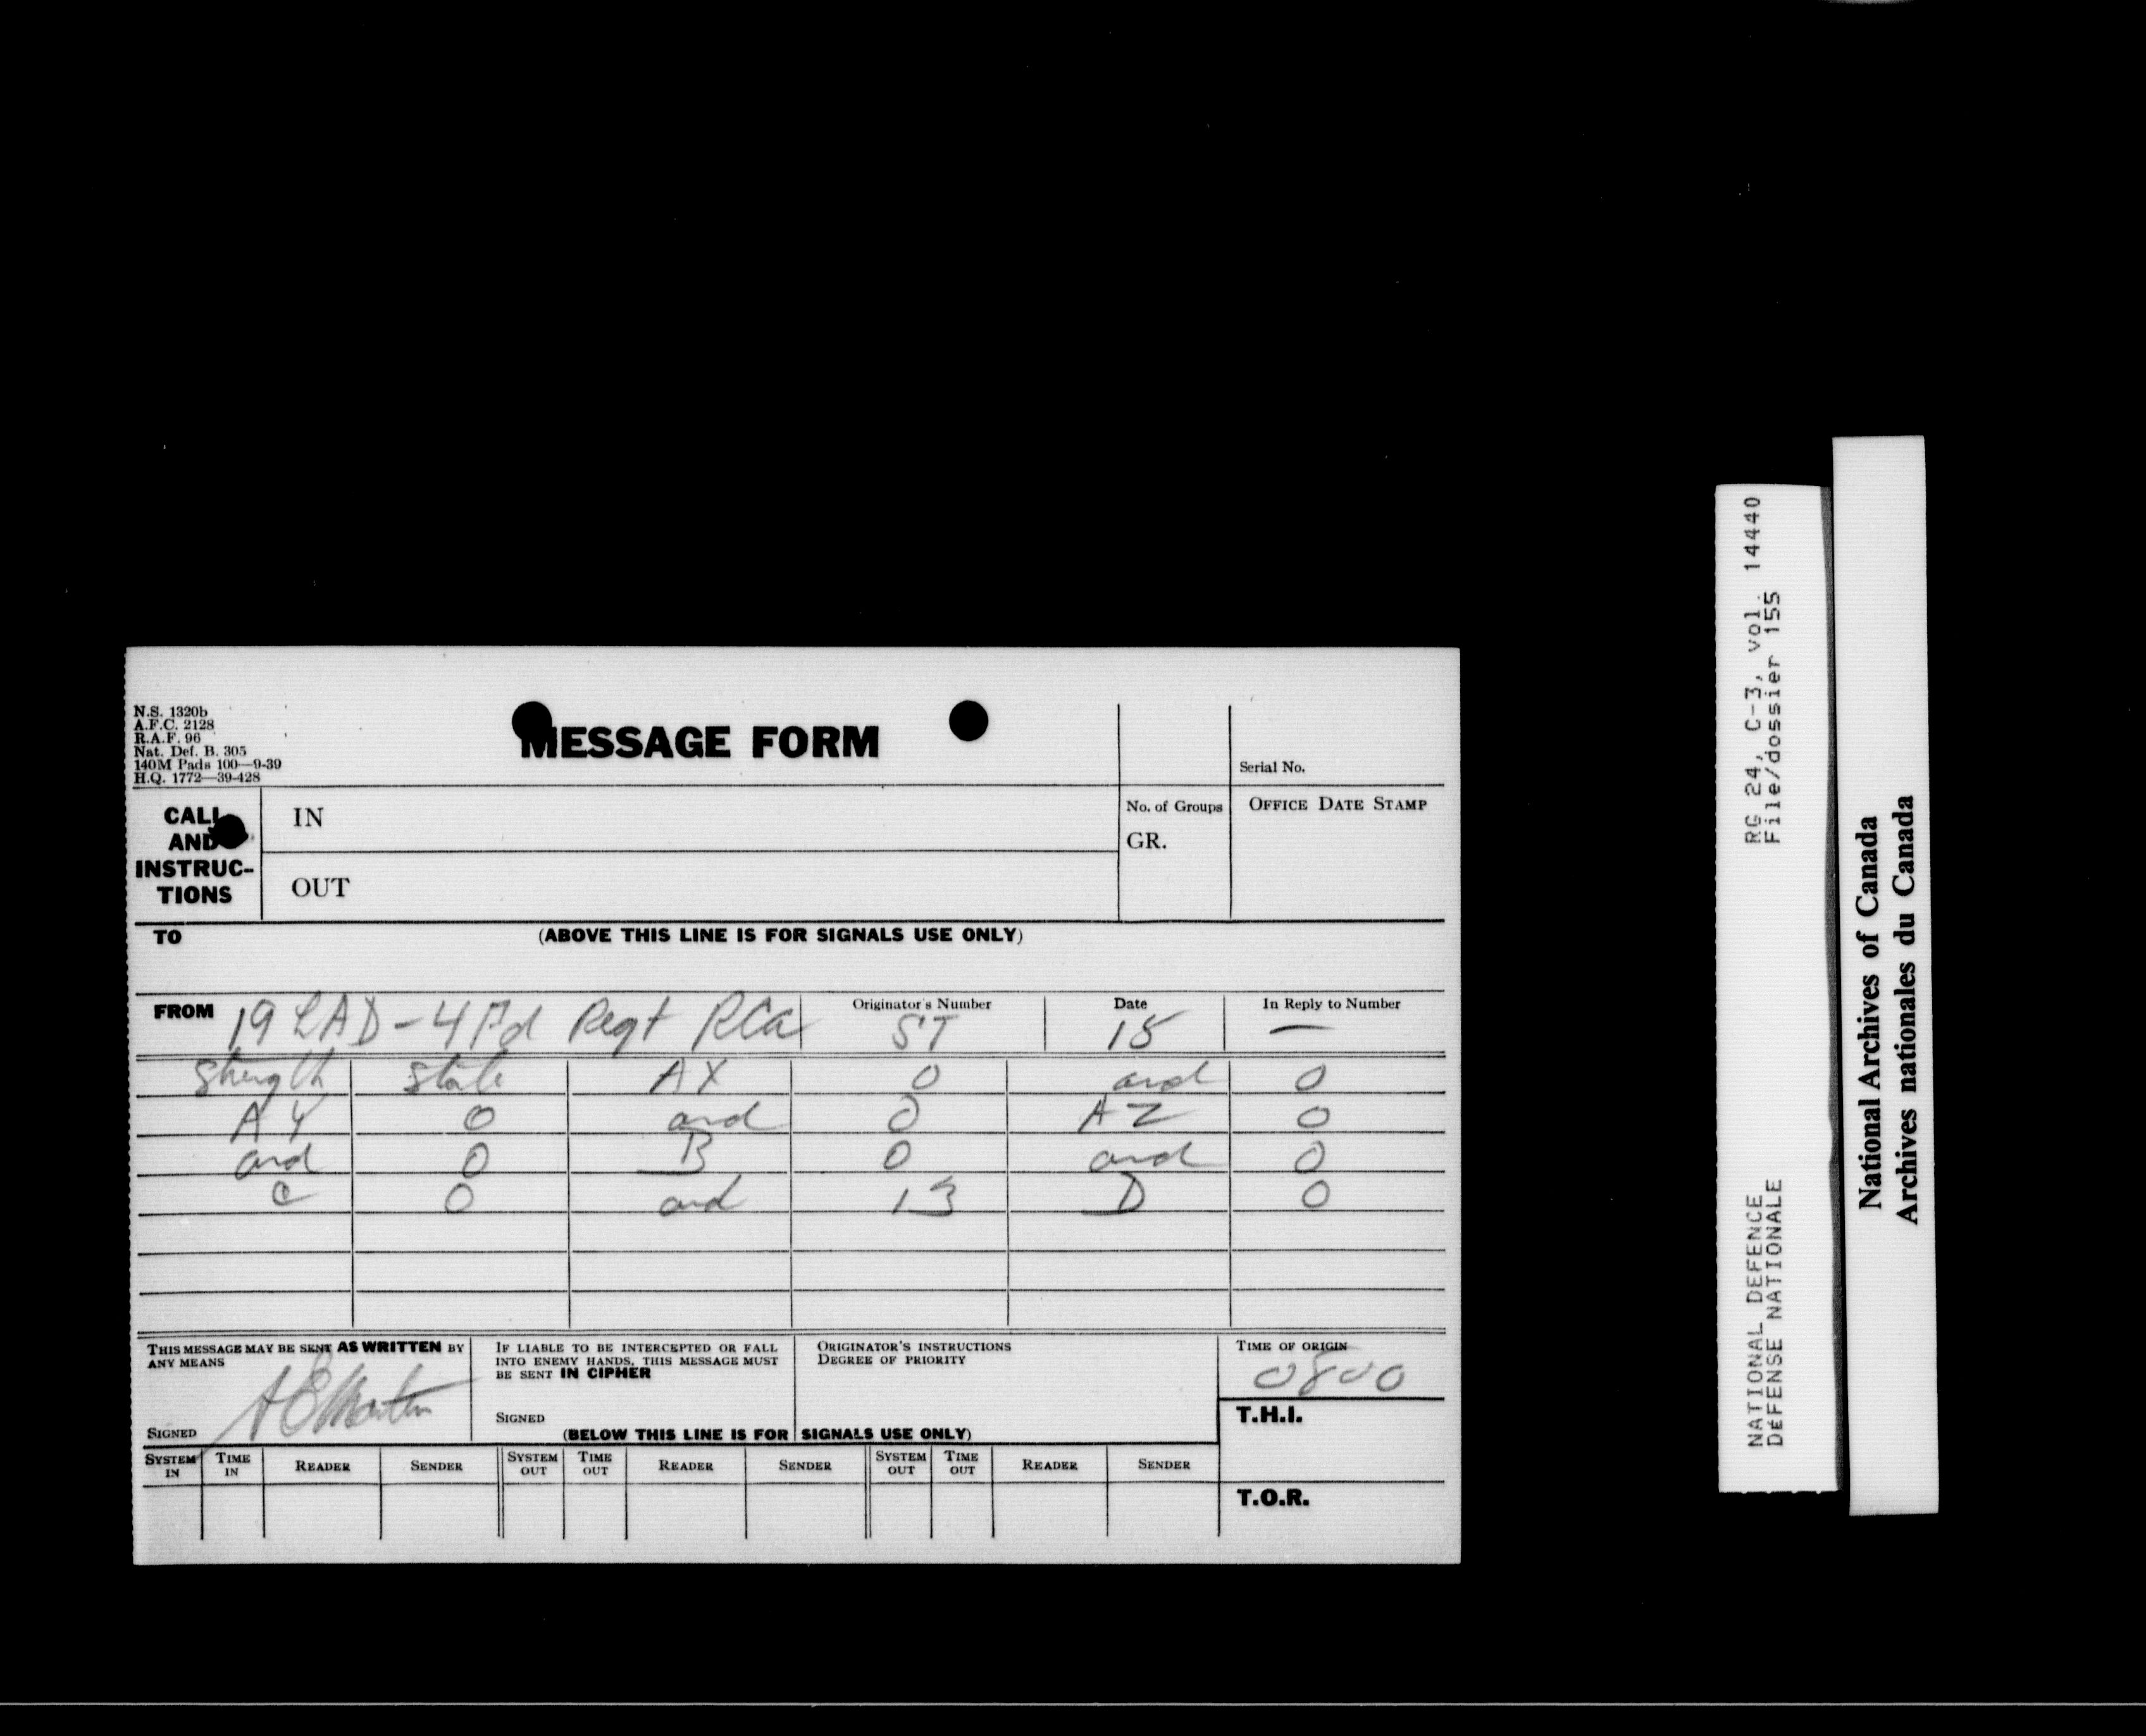 N.S. 1320b
A.F.C. 2128
R.A.F. 96
Nat. Def. B. 305
140M Pads 100—9-39
H.Q. 1772—39-428
MESSAGE FORM
Serial No.
CALL
AND
INSTRUC-
TIONS
IN
OUT
No. of Groups
GR.
OFFICE DATE STAMP
TO
(ABOVE THIS LINE IS FOR SIGNALS USE ONLY)
FROM 19 LAD - 4 Fd Regt RCA
Originator's Number
ST
Date
15
In Reply to Number
—
Strength state AX 0 and 0
AY 0 and 0 AZ 0
and 0 B 0 and 0
C 0 and 13 D 0
THIS MESSAGE MAY BE SENT AS WRITTEN BY
ANY MEANS
SIGNED
IF LIABLE TO BE INTERCEPTED OR FALL
INTO ENEMY HANDS, THIS MESSAGE MUST
BE SENT IN CIPHER
SIGNED
ORIGINATOR'S INSTRUCTIONS
DEGREE OF PRIORITY
TIME OF ORIGIN
0800
T.H.I.
(BELOW THIS LINE IS FOR SIGNALS USE ONLY)
SYSTEM IN TIME IN READER SENDER SYSTEM OUT TIME OUT READER SENDER SYSTEM OUT TIME OUT READER SENDER
T.O.R.
RG 24, C-3, vol. 14440
File/dossier 155
NATIONAL DEFENCE
DÉFENSE NATIONALE
National Archives of Canada
Archives nationales du Canada